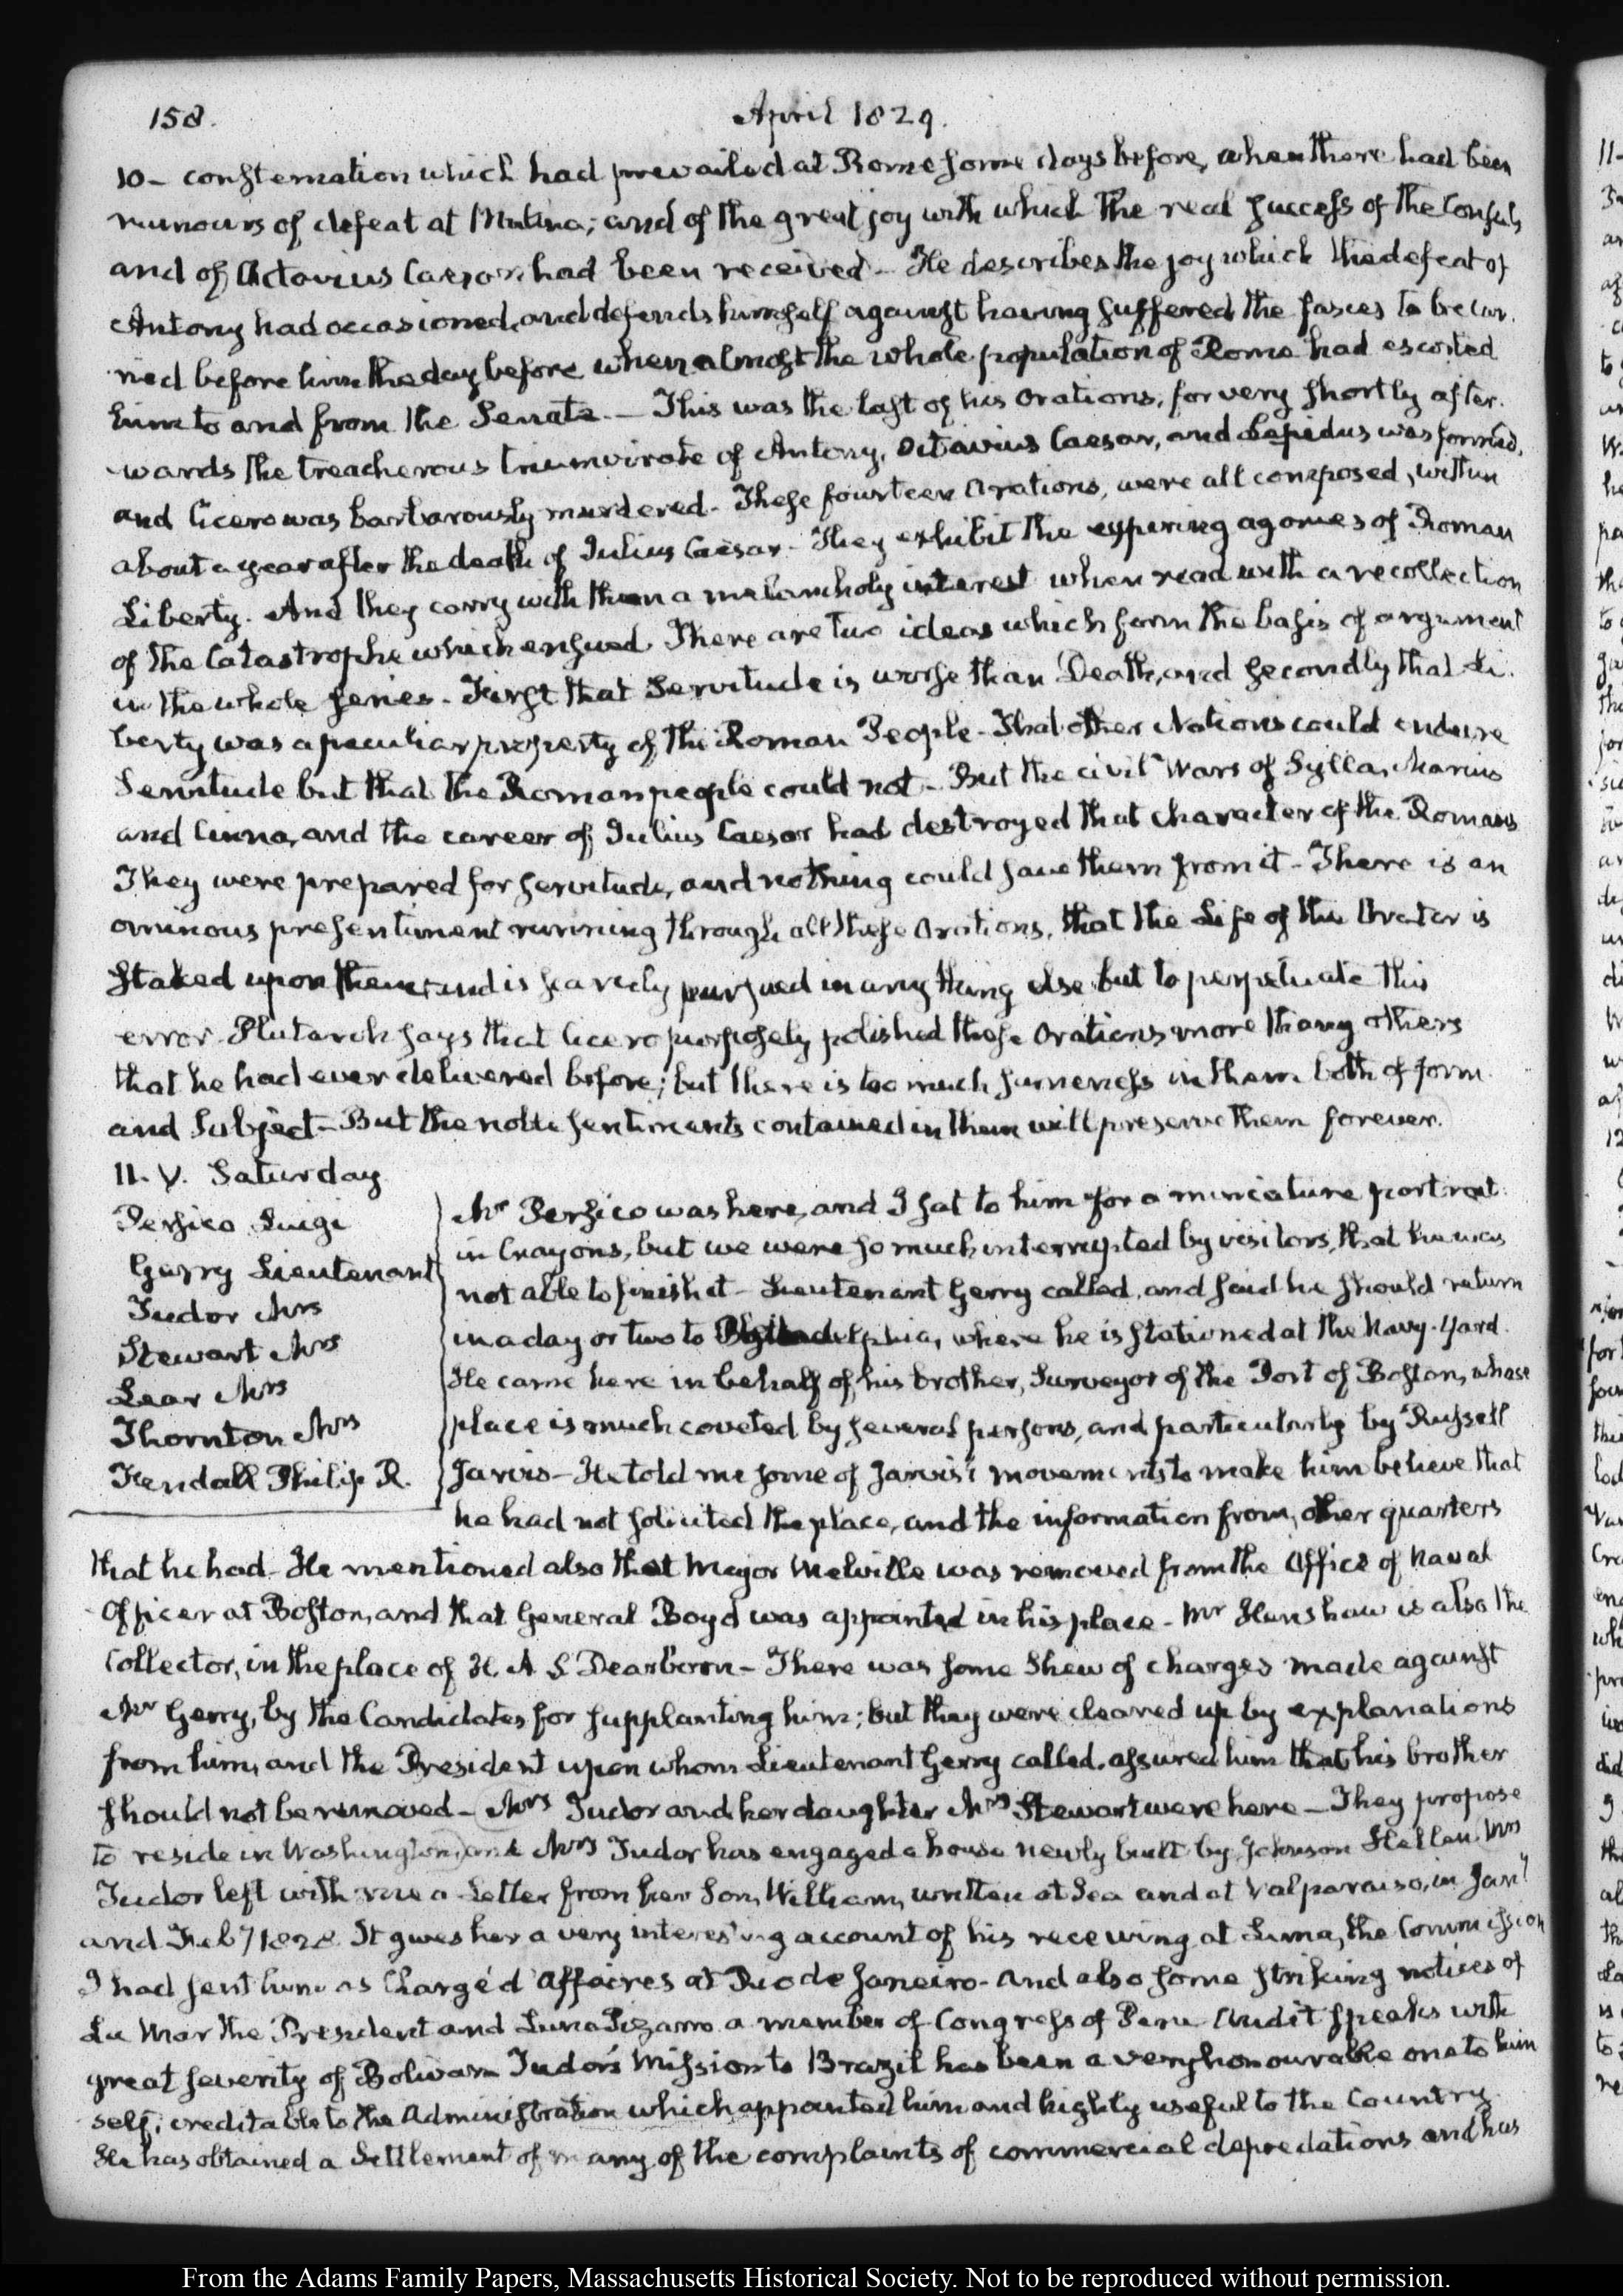 158.
April 1829.
10 – consternation which had prevailed at Rome some days before, when there had been
rumours of defeat at Mutina; and of the great joy with which the real success of the Consuls,
and of Octavius Caesar, had been received – He describes the joy which the defeat of
Antony had occasioned, and defends himself against having suffered the fasces to be car-
ried before him the day before when almost the whole population of Rome had escorted
him to and from the Senate. – This was the last of his Orations, for very shortly after-
wards the treacherous triumvirate of Antony, Octavius Caesar, and Lepidus was formed,
and Cicero was barbarously murdered – These fourteen Orations, were all composed, within
about a year after the death of Julius Caesar – They exhibit the expiring agonies of Roman
Liberty. And they carry with them a melancholy interest when read with a recollection
of the Catastrophe which ensued. There are two ideas which form the basis of argument
in the whole series – First that Servitude is worse than Death, and secondly that Li-
berty was a peculiar property of the Roman People – That other Nations could endure
Servitude but that the Roman people could not – But the civil Wars of Sylla, Marius
and Cinna, and the career of Julius Caesar had destroyed that character of the Romans
They were prepared for servitude, and nothing could save them from it – There is an
ominous presentiment running through all these Orations, that the Life of the Orator is
staked upon them, and is scarcely pursued in any thing else but to perpetuate this
error. Plutarch says that Cicero purposely polished these Orations more than any others
that he had ever delivered before; but there is too much sameness in them both of form
and Subject – But the noble sentiments contained in them will preserve them forever.
11. V. Saturday
Persico Luigi
Gerry Lieutenant
Tudor Mrs
Stewart Mrs
Lear Mrs
Thornton Mrs
Fendall Philip R.
Mr Persico was here, and I sat to him for a miniature portrait
in Crayons, but we were so much interrupted by visitors, that he was
not able to finish it – Lieutenant Gerry called, and said he should return
in a day or two to Philadelphia, where he is stationed at the Navy-Yard.
He came here in behalf of his brother, Surveyor of the Port of Boston, whose
place is much coveted by several persons, and particularly by Russell
Jarvis – He told me some of Jarvis's movements to make him believe that
he had not solicited the place, and the information from other quarters
that he had – He mentioned also that Major Melville was removed from the Office of Naval
Officer at Boston, and that General Boyd was appointed in his place – Mr Henshaw is also the
Collector, in the place of H. A. S Dearborn – There was some shew of charges made against
Mr Gerry, by the Candidates for supplanting him; but they were cleared up by explanations
from him, and the President upon whom Lieutenant Gerry called, assured him that his brother
should not be removed – Mrs Tudor and her daughter Mrs Stewart were here – They propose
to reside in Washington, and Mrs Tudor has engaged a house newly built by Johnson Hellen. Mrs
Tudor left with me a Letter from her Son, William, written at Sea and at Valparaiso, in Jany
and Feby 1828. It gives her a very interesting account of his receiving at Lima, the Commission
I had sent him as Chargé d'Affaires at Rio de Janeiro – and also some striking notices of
La Mar the President and Luna Pizarro a member of Congress of Peru and it speaks with
great severity of Bolivar. Tudor's Mission to Brazil has been a very honourable one to him
self, creditable to the Administration which appointed him and highly useful to the Country.
He has obtained a Settlement of many of the complaints of commercial depredations and has
From the Adams Family Papers, Massachusetts Historical Society. Not to be reproduced without permission.